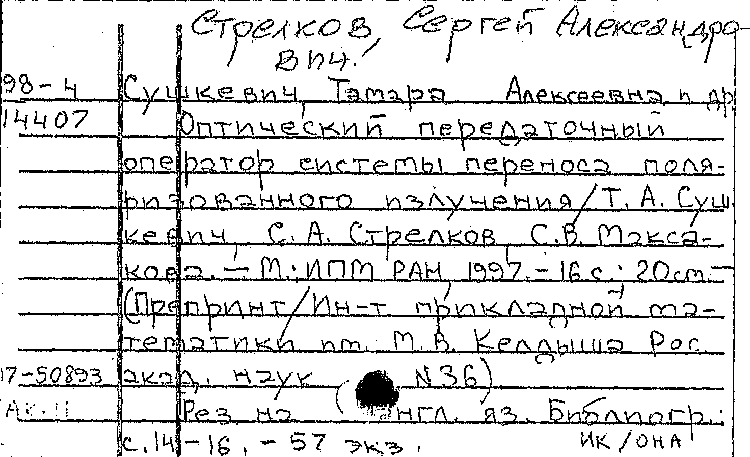 Стрелков, Сергей Александро-
вич.
98-4 Сушкевич, Тамара Алексеевна и др
14407 Оптический передаточный
оператор системы переноса поля-
ризованного излучения/Т. А. Суш-
кевич, С. А. Стрелков, С.В. Макса-
кова. – М.: ИПМ РАН, 1997. - 16 с.; 20см. –
(Препринт/Ин-т прикладной ма-
тематики им. М. В. Келдыша Рос.
17-50893 акад. наук N36)
Рез на англ. яз. Библиогр.:
с. 14-16. - 57 экз.
ИК/ОНА